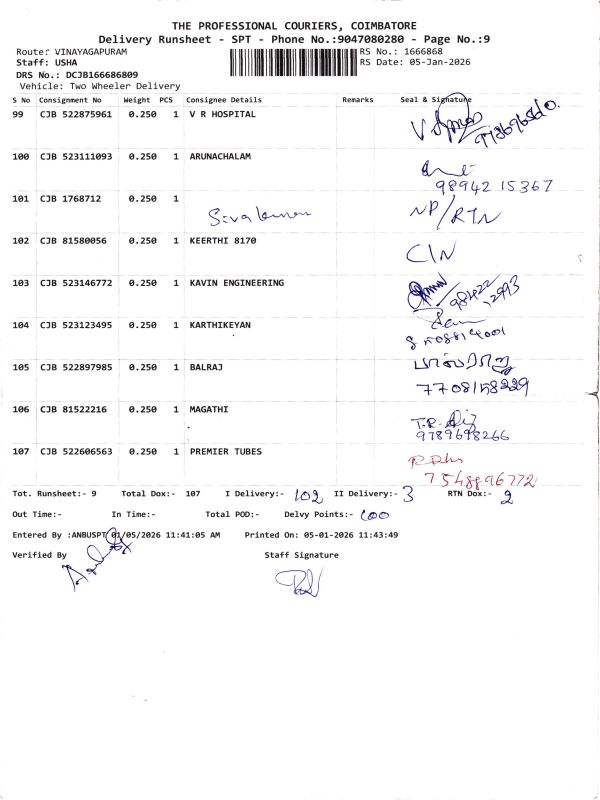 THE PROFESSIONAL COURIERS, COIMBATORE
Delivery Runsheet - SPT - Phone No.:9047080280 - Page No.:9
Route: VINAYAGAPURAM RS No.: 1666868
Staff: USHA RS Date: 05-Jan-2026
DRS No.: DCJB166686809
Vehicle: Two Wheeler Delivery
S No Consignment No Weight PCS Consignee Details Remarks Seal & Signature
99 CJB 522875961 0.250 1 V R HOSPITAL
100 CJB 523111093 0.250 1 ARUNACHALAM
98942 15367
101 CJB 1768712 0.250 1
Sivakumar NP/RTN
102 CJB 81580056 0.250 1 KEERTHI 8170
C/N
103 CJB 523146772 0.250 1 KAVIN ENGINEERING
98422
12993
104 CJB 523123495 0.250 1 KARTHIKEYAN
105 CJB 522897985 0.250 1 BALRAJ
7708158229
106 CJB 81522216 0.250 1 MAGATHI
T.R.
9789698266
107 CJB 522606563 0.250 1 PREMIER TUBES
7548896772
Tot. Runsheet:- 9 Total Dox:- 107 I Delivery:- 102 II Delivery:- 3 RTN Dox:- 2
Out Time:- In Time:- Total POD:- Delvy Points:- 100
Entered By :ANBUSPT 01/05/2026 11:41:05 AM Printed On: 05-01-2026 11:43:49
Verified By Staff Signature